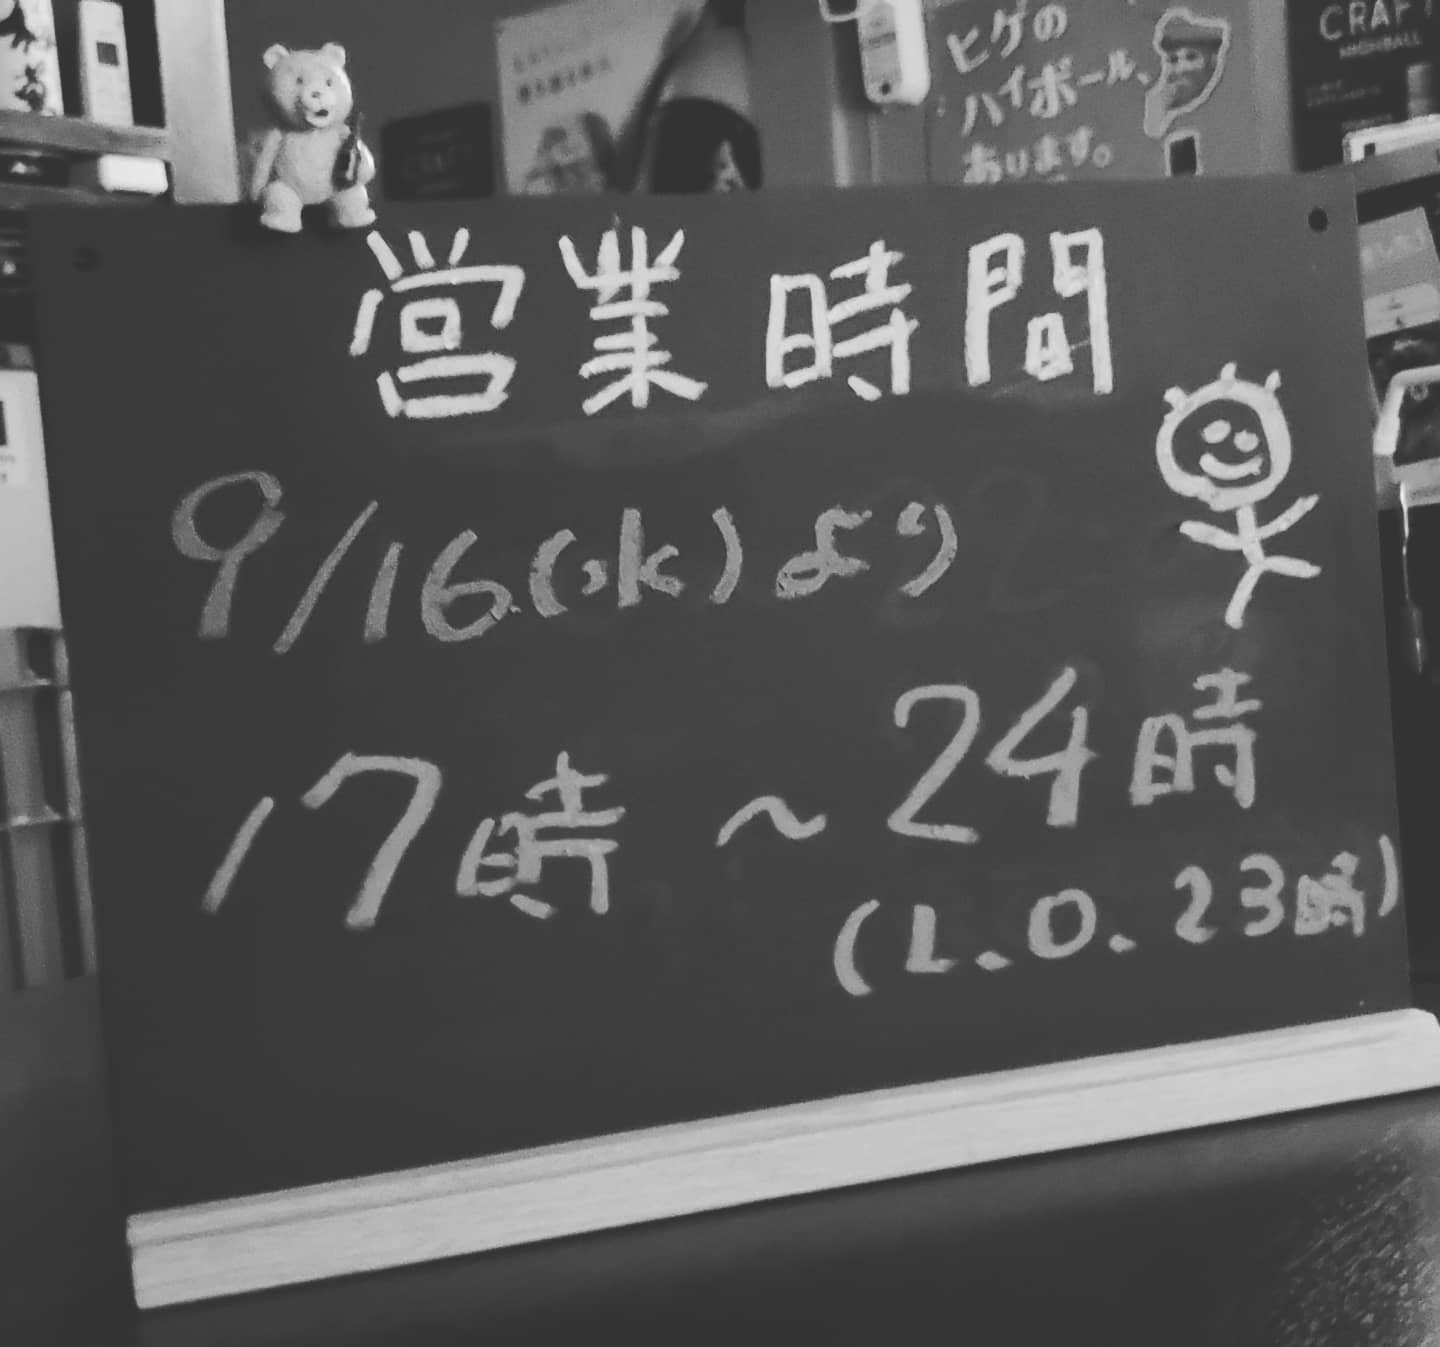 ヒゲの
ハイボール、
あります。
CRAFT
HIGHBALL
営業時間
9/16(水)より
17時～24時
(L.O.23時)